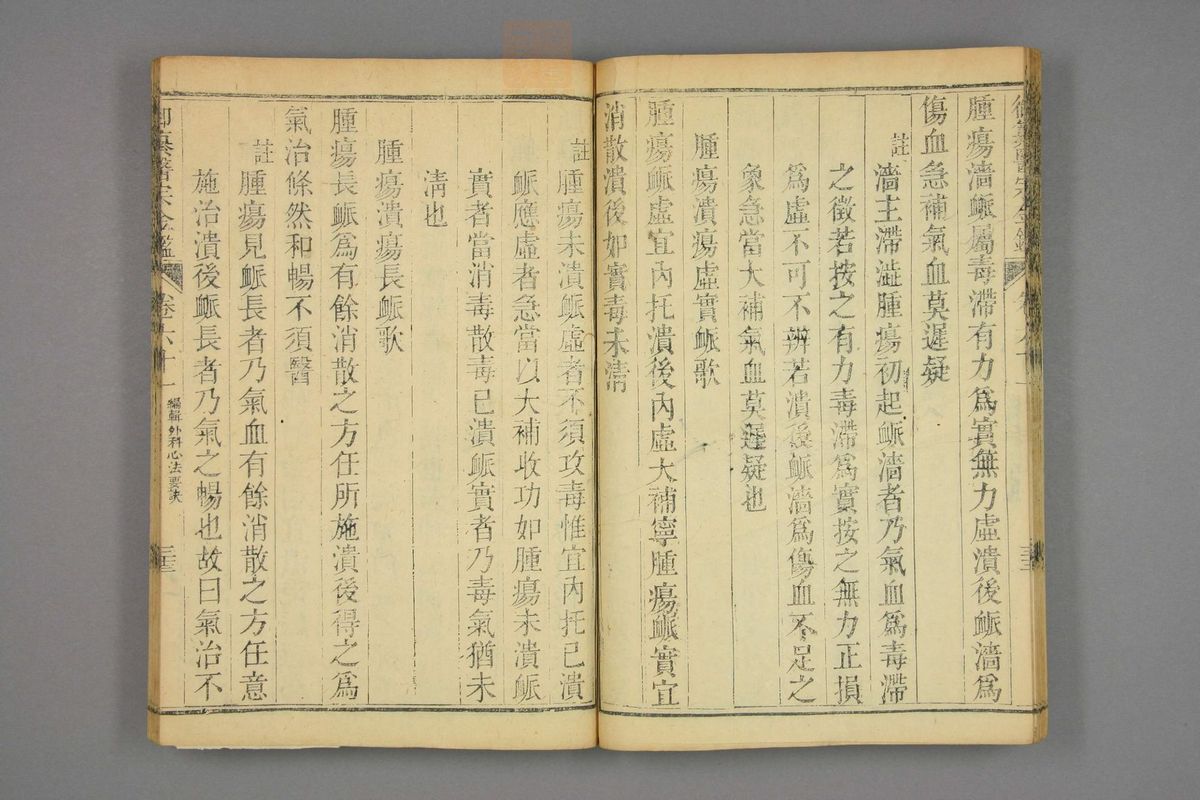 腫瘍濇䘑屬毒滯有力爲實無力虛潰後䘑濇爲
傷血急補氣血莫遲疑
註濇主滯澁腫瘍初起䘑濇者乃氣血爲毒滯
之徵若按之有力毒滯爲實按之無力正損
爲虛不可不辨若潰後䘑濇爲傷血不足之
象急當大補氣血莫遲疑也
腫瘍潰瘍虛實䘑歌
腫瘍䘑虛宜內托潰後內虛大補寧腫瘍䘑實宜
消散潰後如實毒未清
註腫瘍未潰䘑虛者不須攻毒惟宜內托已潰
䘑應虛者急當以大補收功如腫瘍未潰䘑
實者當消毒散毒已潰䘑實者乃毒氣猶未
淸也
腫瘍潰瘍長䘑歌
腫瘍長䘑爲有餘消散之方任所施潰後得之爲
氣治條然和暢不須醫
註腫瘍見䘑長者乃氣血有餘消散之方任意
施治潰後䘑長者乃氣之暢也故曰氣治不
御纂醫宗金鑑
卷六十一
編輯外科心法要訣
三